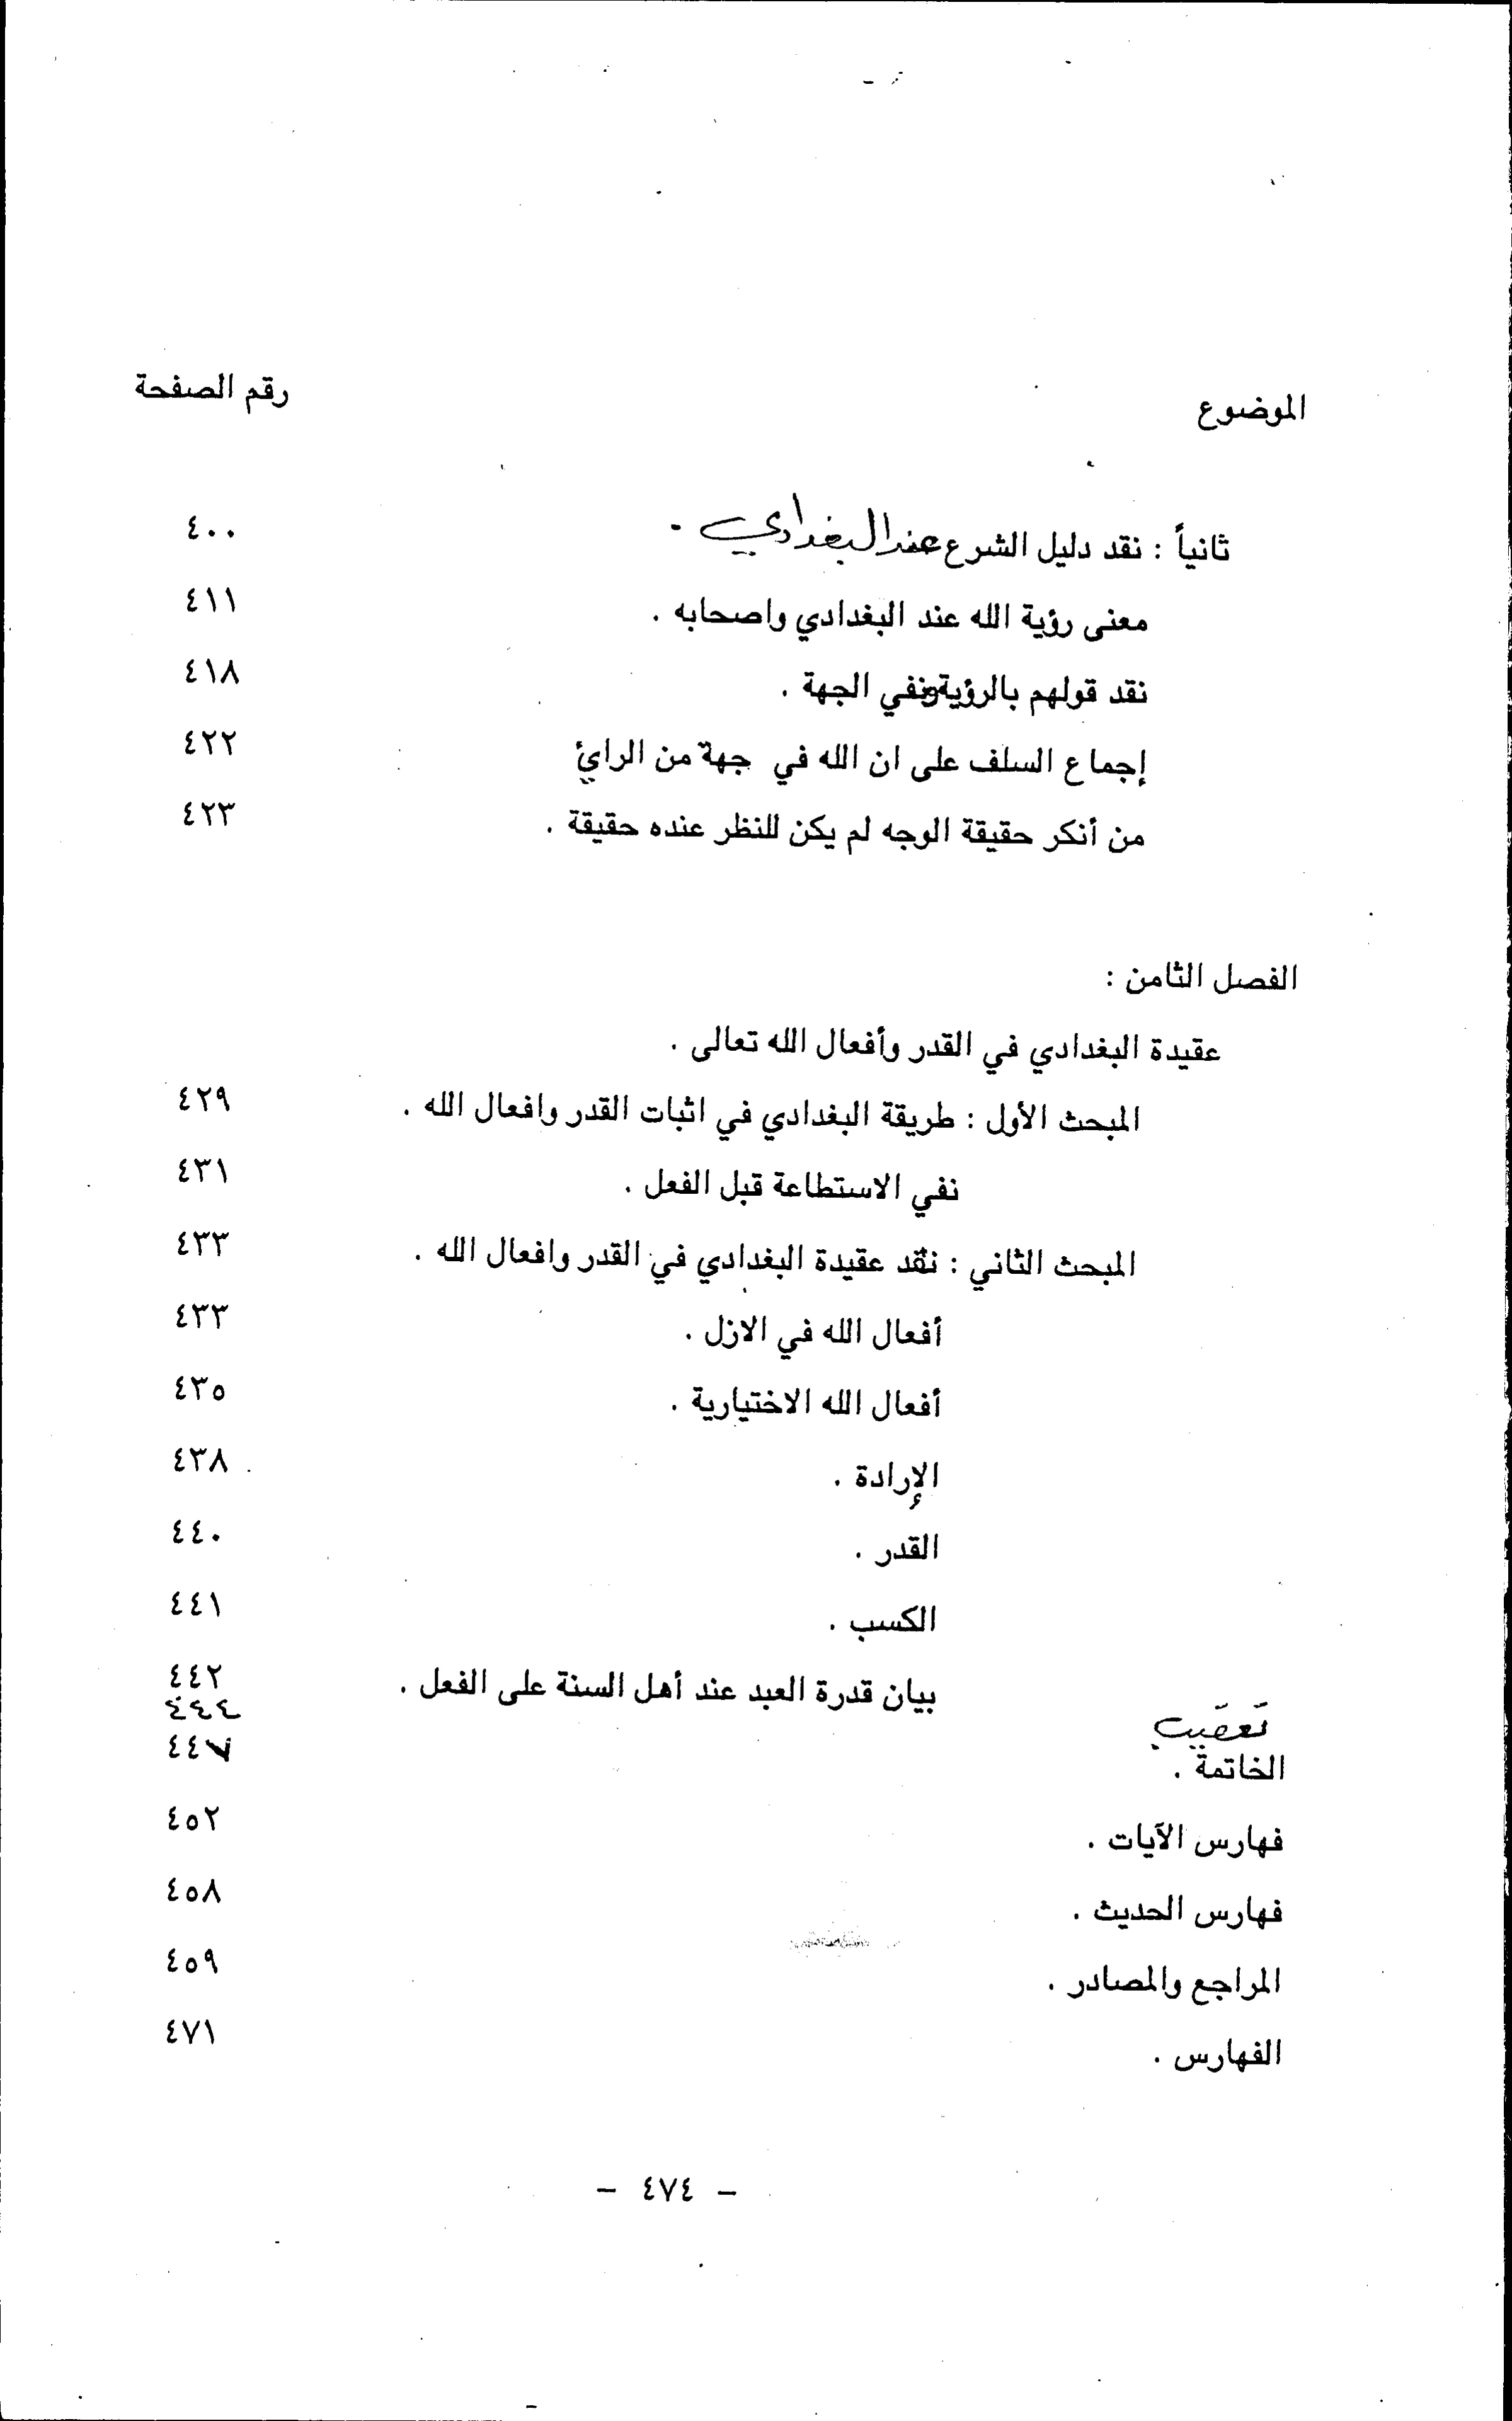 الموضوع رقم الصفحة
ثانياً : نقد دليل الشرع عند البغدادي . ٤٠٠
معنى رؤية الله عند البغدادي واصحابه . ٤١١
نقد قولهم بالرؤية ونفي الجهة . ٤١٨
إجماع السلف على ان الله في جهة من الرائ ٤٢٢
من أنكر حقيقة الوجه لم يكن للنظر عنده حقيقة . ٤٢٣
الفصل الثامن :
عقيدة البغدادي في القدر وأفعال الله تعالى .
المبحث الأول : طريقة البغدادي في اثبات القدر وافعال الله . ٤٢٩
نفي الاستطاعة قبل الفعل . ٤٣١
المبحث الثاني : نقد عقيدة البغدادي في القدر وافعال الله . ٤٣٣
أفعال الله في الازل . ٤٣٣
أفعال الله الاختيارية . ٤٣٥
الإرادة . ٤٣٨
القدر . ٤٤٠
الكسب . ٤٤١
بيان قدرة العبد عند أهل السنة على الفعل . ٤٤٢
تعقيب ٤٤٤
الخاتمة . ٤٤٧
فهارس الآيات . ٤٥٢
فهارس الحديث . ٤٥٨
المراجع والمصادر . ٤٥٩
الفهارس . ٤٧١
– ٤٧٤ –